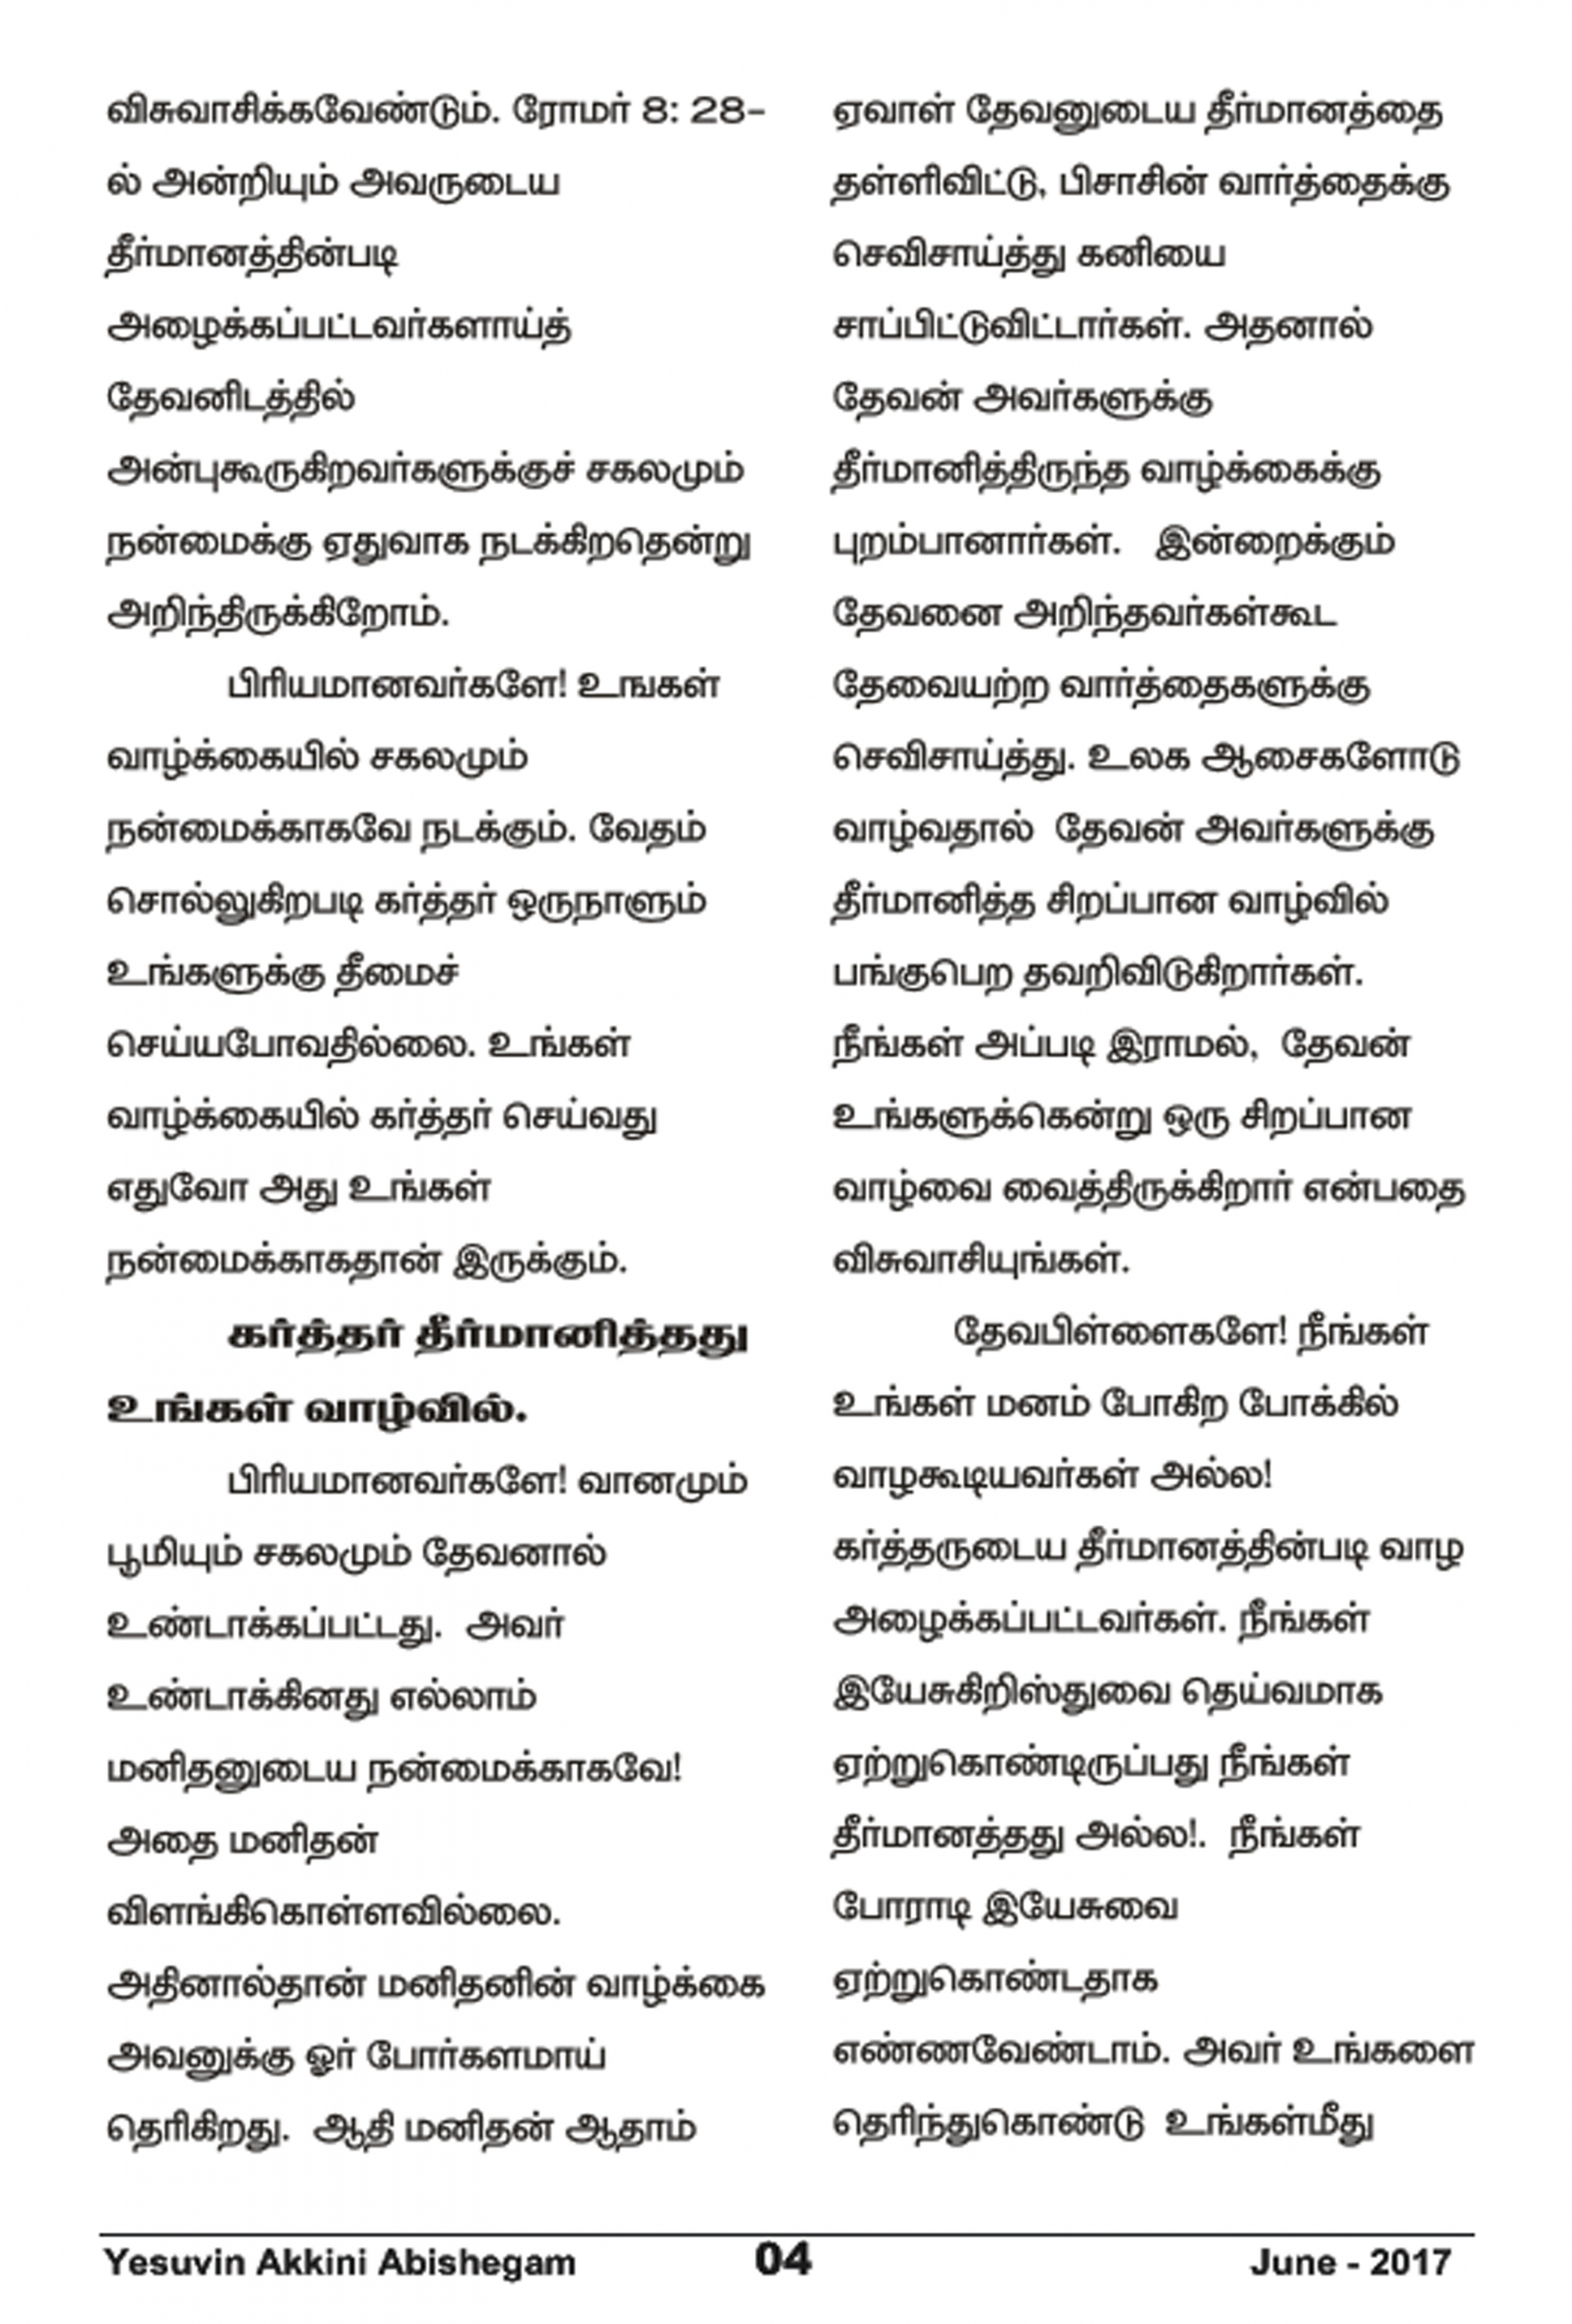 விசுவாசிக்கவேண்டும். ரோமர் 8: 28-
ல் அன்றியும் அவருடைய
தீர்மானத்தின்படி
அழைக்கப்பட்டவர்களாய்த்
தேவனிடத்தில்
அன்புகூருகிறவர்களுக்குச் சகலமும்
நன்மைக்கு ஏதுவாக நடக்கிறதென்று
அறிந்திருக்கிறோம்.
பிரியமானவர்களே! உஙகள்
வாழ்க்கையில் சகலமும்
நன்மைக்காகவே நடக்கும். வேதம்
சொல்லுகிறபடி கர்த்தர் ஒருநாளும்
உங்களுக்கு தீமைச்
செய்யபோவதில்லை. உங்கள்
வாழ்க்கையில் கர்த்தர் செய்வது
எதுவோ அது உங்கள்
நன்மைக்காகதான் இருக்கும்.
கர்த்தர் தீர்மானித்தது
உங்கள் வாழ்வில்.
பிரியமானவர்களே! வானமும்
பூமியும் சகலமும் தேவனால்
உண்டாக்கப்பட்டது. அவர்
உண்டாக்கினது எல்லாம்
மனிதனுடைய நன்மைக்காகவே!
அதை மனிதன்
விளங்கிகொள்ளவில்லை.
அதினால்தான் மனிதனின் வாழ்க்கை
அவனுக்கு ஓர் போர்களமாய்
தெரிகிறது. ஆதி மனிதன் ஆதாம்
ஏவாள் தேவனுடைய தீர்மானத்தை
தள்ளிவிட்டு, பிசாசின் வார்த்தைக்கு
செவிசாய்த்து கனியை
சாப்பிட்டுவிட்டார்கள். அதனால்
தேவன் அவர்களுக்கு
தீர்மானித்திருந்த வாழ்க்கைக்கு
புறம்பானார்கள். இன்றைக்கும்
தேவனை அறிந்தவர்கள்கூட
தேவையற்ற வார்த்தைகளுக்கு
செவிசாய்த்து. உலக ஆசைகளோடு
வாழ்வதால் தேவன் அவர்களுக்கு
தீர்மானித்த சிறப்பான வாழ்வில்
பங்குபெற தவறிவிடுகிறார்கள்.
நீங்கள் அப்படி இராமல், தேவன்
உங்களுக்கென்று ஒரு சிறப்பான
வாழ்வை வைத்திருக்கிறார் என்பதை
விசுவாசியுங்கள்.
தேவபிள்ளைகளே! நீங்கள்
உங்கள் மனம் போகிற போக்கில்
வாழகூடியவர்கள் அல்ல!
கர்த்தருடைய தீர்மானத்தின்படி வாழ
அழைக்கப்பட்டவர்கள். நீங்கள்
இயேசுகிறிஸ்துவை தெய்வமாக
ஏற்றுகொண்டிருப்பது நீங்கள்
தீர்மானத்தது அல்ல!. நீங்கள்
போராடி இயேசுவை
ஏற்றுகொண்டதாக
எண்ணவேண்டாம். அவர் உங்களை
தெரிந்துகொண்டு உங்கள்மீது
Yesuvin Akkini Abishegam 04 June - 2017